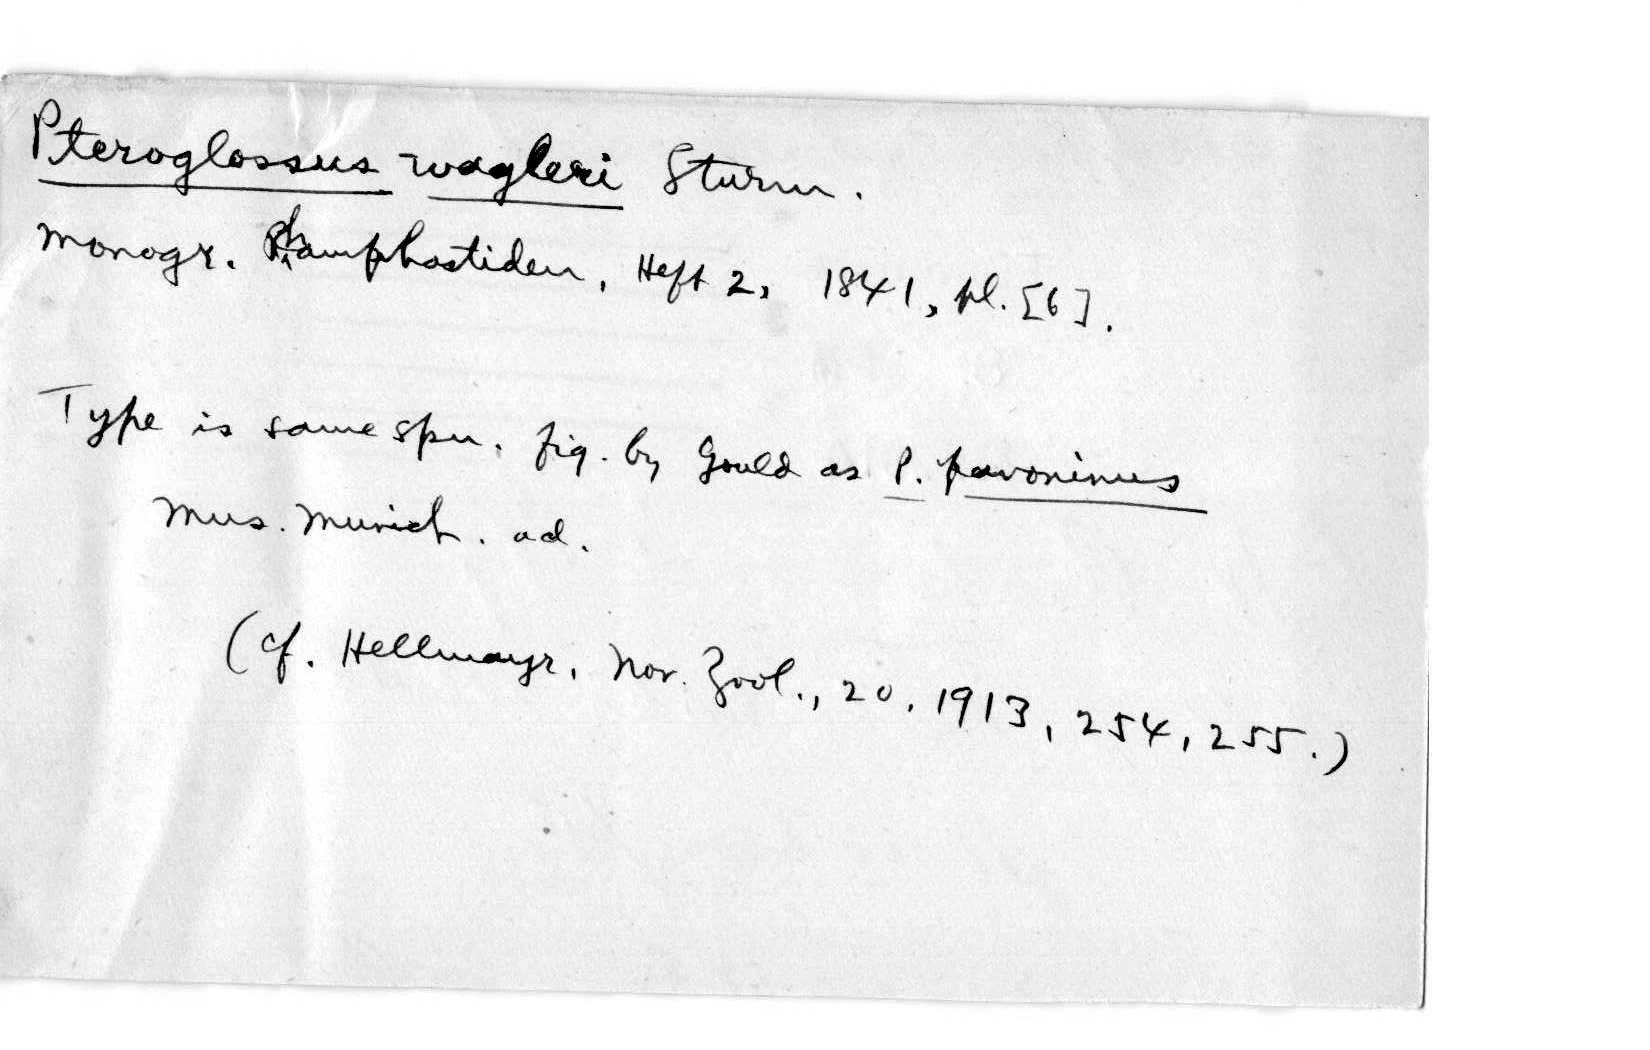 Pteroglossus wagleri Sturm.
Monogr. Rhamphastiden, Heft 2, 1841, pl. [6].
Type is same spm. fig. by Gould as P. pavoninus
Mus. Munich. ad.
(cf. Hellmayr, Nov. Zool., 20, 1913, 254, 255.)